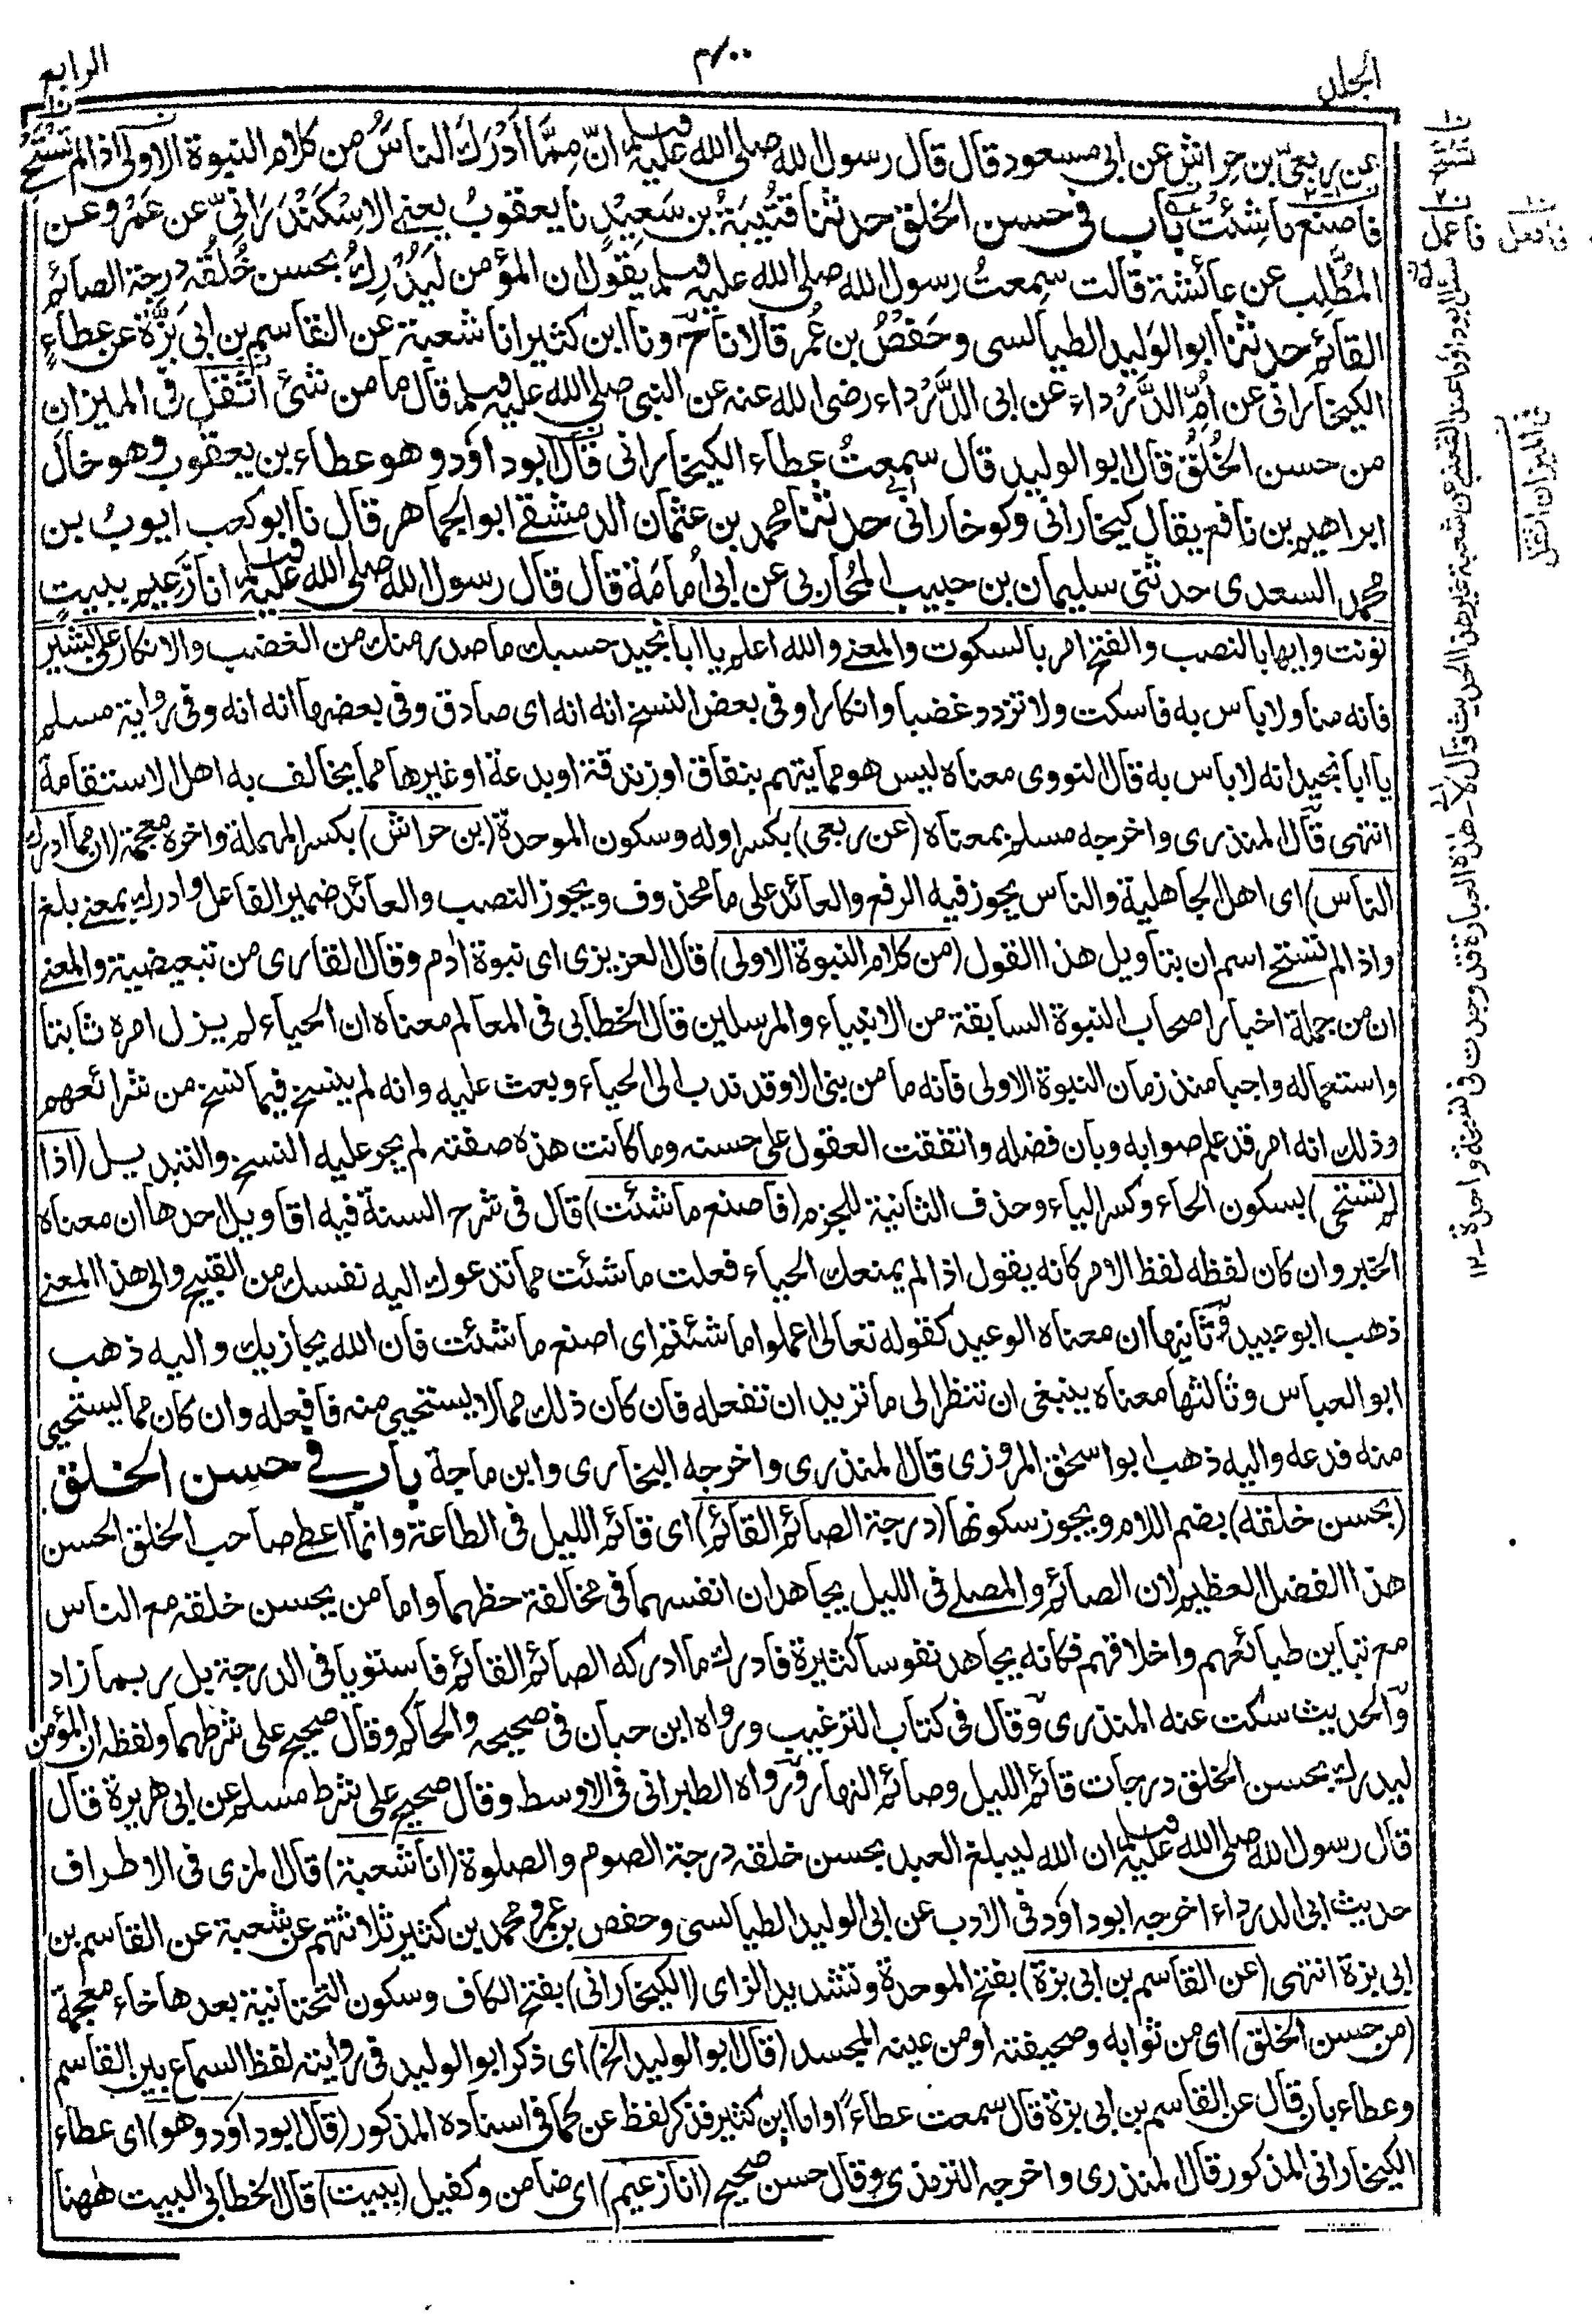 الجلد
٤٠٠
الرابع
عن ربعيّ بن حِراش عن ابي مسعود قال قال رسول الله صلى الله عليه وسلم انّ مِمَّا أدْرَكَ الناسُ من كلام النبوة الاولى اذا لم تَسْتَحْيِ
فاصنع ما شِئْتَ باب في حسن الخلق حدثنا قُتَيْبَةُ بن سَعِيْدٍ نا يعقوبُ يعني الاِسْكَنْدَرَانِيّ عن عَمْرو عن
المُطَّلِب عن عائشة قالت سمعتُ رسول الله صلى الله عليه وسلم يقول ان المؤمن لَيُدْرِكُ بحسن خُلُقِه درجة الصائم
القائم حدثنا ابو الوَليد الطيالسي وحَفْصُ بن عُمر قالا نا ح ونا ابن كثير انا شعبة عن القاسم بن ابي بَزَّةَ عن عطاءٍ
الكيخاراني عن أمِّ الدَّرْداء عن ابي الدَّرْداء رضى الله عنه عن النبي صلى الله عليه وسلم قال ما من شئ اَثْقَل في الميزان
من حسن الخُلُقُ قال ابو الوليد قال سمعتُ عطاء الكيخاراني قال ابو داؤد وهو عطاء بن يعقوب وهو خال
ابراهيم بن نافع يقال كيخاراني وكوخاراني حدثنا محمد بن عثمان الدمشقي ابو الجماهر قال نا ابو كعب ايوبُ بن
محمد السعدى حدثني سليمان بن حبيب المُحاربي عن ابي اُمامَة قال قال رسول الله صلى الله عليه وسلم انا زَعِيم ببيتٍ
نونت وايها بالنصب والفتح امر بالسكوت والمعنى والله اعلم يا ابا نجيد حسبك ما صدر منك من الغضب والانكار على بشير
فانه منا ولا باس به فاسكت ولا تزدد غضبا وانكارا وفي بعض النسخ انه انه اى صادق وفي بعضها انه انه وفي رواية مسلم
يا ابا نجيد انه لا باس به قال النووى معناه ليس هو مما يتهم بنفاق او زندقة او بدعة او غيرها مما يخالف به اهل الاستقامة
انتهى قال المنذرى واخرجه مسلم بمعناه (عن ربعى) بكسر اوله وسكون الموحدة (بن حراش) بكسر المهملة واخره معجمة (ان مما ادرك
الناس) اى اهل الجاهلية والناس يجوز فيه الرفع والعائد على ما محذوف ويجوز النصب والعائد ضمير الفاعل وادرك بمعنى بلغ
واذا لم تستحي اسم ان بتاويل هذا القول (من كلام النبوة الاولى) قال العزيزى اى نبوة ادم وقال القارى من تبعيضية والمعنى
ان من جملة اخبار اصحاب النبوة السابقة من الانبياء والمرسلين قال الخطابي في المعالم معناه ان الحياء لم يزل امره ثابتا
واستعماله واجبا منذ زمان النبوة الاولى فانه ما من نبي الا وقد ندب الى الحياء وبعث عليه وانه لم ينسخ فيما نسخ من شرائعهم
وذلك انه امر قد علم صوابه وبان فضله واتفقت العقول على حسنه وما كانت هذه صفته لم يجر عليه النسخ والتبديل (اذا
لم تستحي) بسكون الحاء وكسر الياء وحذف الثانية للجزم (فاصنع ما شئت) قال في شرح السنة فيه اقاويل احدها ان معناه
الخبر وان كان لفظه لفظ الامر كانه يقول اذا لم يمنعك الحياء فعلت ما شئت مما تدعوك اليه نفسك من القبيح والى هذا المعنى
ذهب ابو عبيد وثانيها ان معناه الوعيد كقوله تعالى اعملوا ما شئتم اى اصنع ما شئت فان الله يجازيك واليه ذهب
ابو العباس وثالثها معناه ينبغى ان تنظر الى ما تريد ان تفعله فان كان ذلك مما لا يستحيي منه فافعله وان كان مما يستحيي
منه فدعه واليه ذهب ابو اسحٰق المروزى قال المنذرى واخرجه البخارى وابن ماجة باب في حسن الخلق
(بحسن خلقه) بضم اللام ويجوز سكونها (درجة الصائم القائم) اى قائم الليل في الطاعة وانما اعطى صاحب الخلق الحسن
هذا الفضل العظيم لان الصائم والمصلي في الليل يجاهدان انفسهما في مخالفة حظهما واما من يحسن خلقه مع الناس
مع تباين طبائعهم واخلاقهم فكانه يجاهد نفوسا كثيرة فادرك ما ادركه الصائم القائم فاستويا في الدرجة بل ربما زاد
والحديث سكت عنه المنذرى وقال في كتاب الترغيب ورواه ابن حبان في صحيحه والحاكم وقال صحيح على شرطهما ولفظه ان المؤمن
ليدرك بحسن الخلق درجات قائم الليل وصائم النهار ورواه الطبراني في الاوسط وقال صحيح على شرط مسلم عن ابي هريرة قال
قال رسول الله صلى الله عليه وسلم ان الله ليبلغ العبد بحسن خلقه درجة الصوم والصلوة (انا شعبة) قال المزى في الاطراف
حديث ابي الدرداء اخرجه ابو داؤد في الادب عن ابي الوليد الطيالسى وحفص بن عمرو محمد بن كثير ثلاثتهم عن شعبة عن القاسم بن
ابي بزة انتهى (عن القاسم بن ابى بزة) بفتح الموحدة وتشديد الزاى (الكيخاراني) بفتح الكاف وسكون التحتانية بعدها خاء معجمة
(من حسن الخلق) اى من ثوابه وصحيفته او من عينه المجسد (قال ابو الوليد الخ) اى ذكر ابو الوليد في روايته لفظ السماع بين القاسم
وعطاء بان قال عن القاسم بن ابي بزة قال سمعت عطاءً واما ابن كثير فذكر لفظ عن كما في اسناده المذكور (قال ابو داؤد وهو) اى عطاء
الكيخاراني المذكور قال المنذرى واخرجه الترمذى وقال حسن صحيح (انا زعيم) اى ضامن وكفيل (ببيت) قال الخطابي البيت ههنا
فاعمل
فافعل
سئل ابو داؤد اعند القعنبي عن شعبة غير هذا الحديث قال لا - هذه العبارة قد وجدت في نسخة واحدة - ١٢
في الميزان اثقل